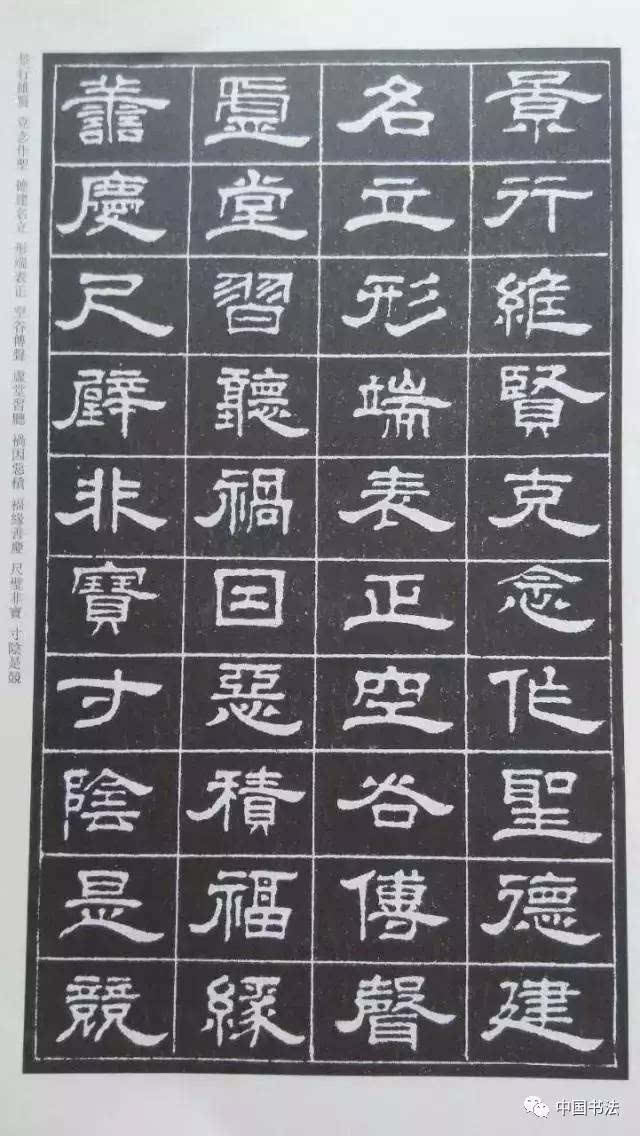 景行維賢克念作聖德建
名立形端表正空谷傳聲
虛堂習聽禍因惡積福緣
善慶尺璧非寶寸陰是競
景行維賢 克念作聖 德建名立 形端表正 空谷傳聲 虛堂習聽 禍因惡積 福緣善慶 尺璧非寶 寸陰是競
中国书法